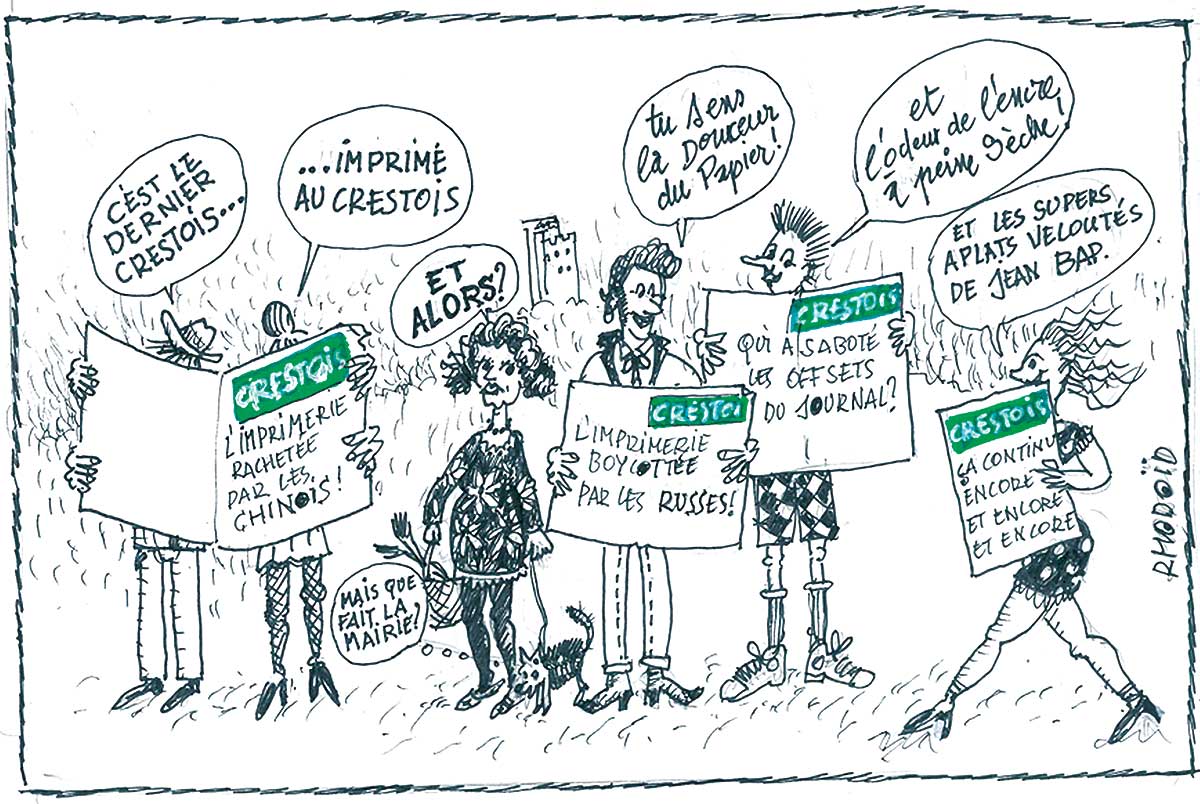 C'EST LE
DERNIER
CRESTOIS...
...IMPRIMÉ
AU CRESTOIS
ET
ALORS?
tu sens
la Douceur
du Papier!
et
l'odeur de l'encre
à peine sèche!
ET LES SUPERS
APLATS VELOUTÉS
DE JEAN BAP.
CRESTOIS
L'IMPRIMERIE
RACHETÉE
PAR LES
CHINOIS!
MAIS QUE
FAIT LA
MAIRIE?
CRESTOI
L'IMPRIMERIE
BOYCOTTÉE
PAR LES RUSSES!
CRESTOIS
QUI A SABOTÉ
LES OFFSETS
DU JOURNAL?
CRESTOIS
ÇA CONTINU
ENCORE
ET ENCORE
ET ENCORE
RHODOÏD